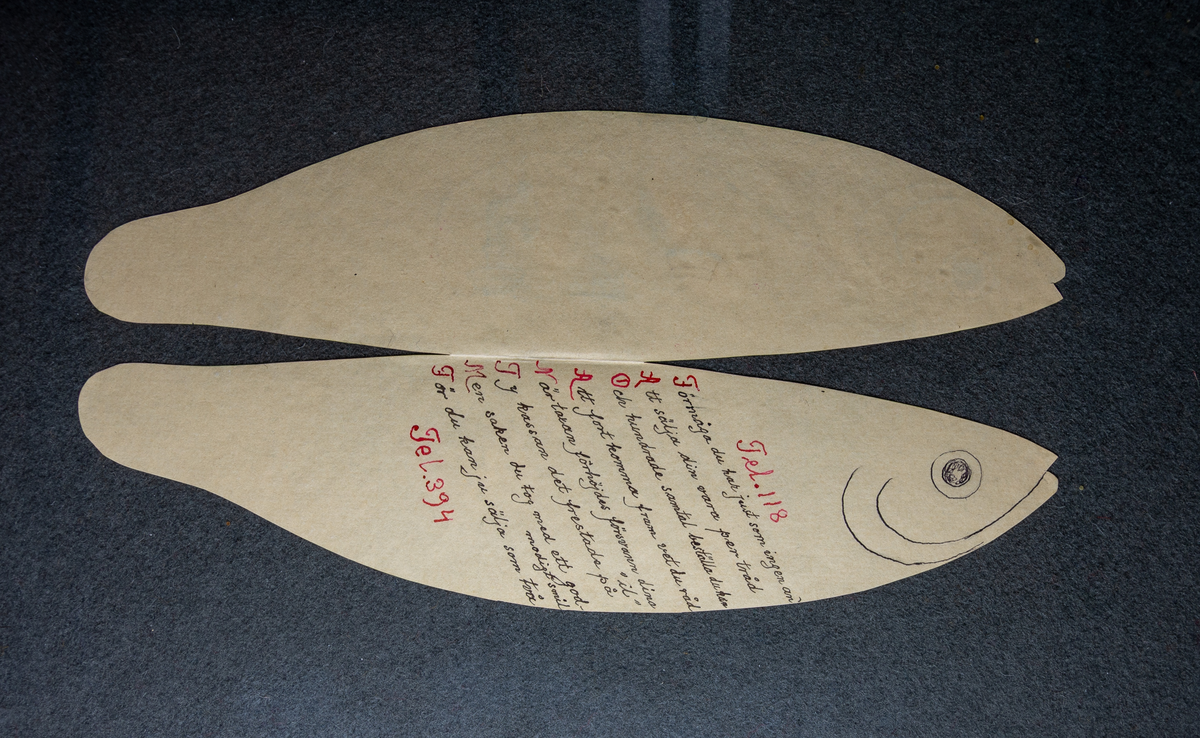 Tel. 118
Förmåga du har just som ingen an
Att sälja din vara per tråd
Och hundrade samtal beställa du kan
Att fort komma fram vet du råd
När taxan förhöjdes försvann dina "il"
Ty kassan det frestade på
Men saken du tog med ett god-
modigt smil
För du kan ju sälja som två
Tel. 394